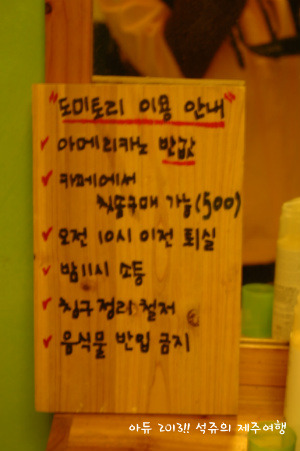 "도미토리 이용 안내"
✓ 아메리카노 반값
✓ 카페에서
칫솔구매 가능(500)
✓ 오전 10시 이전 퇴실
✓ 밤 11시 소등
✓ 침구정리 철저
✓ 음식물 반입 금지
아듀 2013!! 석쥬의 제주여행